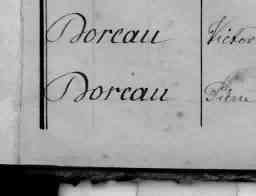 Doreau Victor
Doreau Pierre